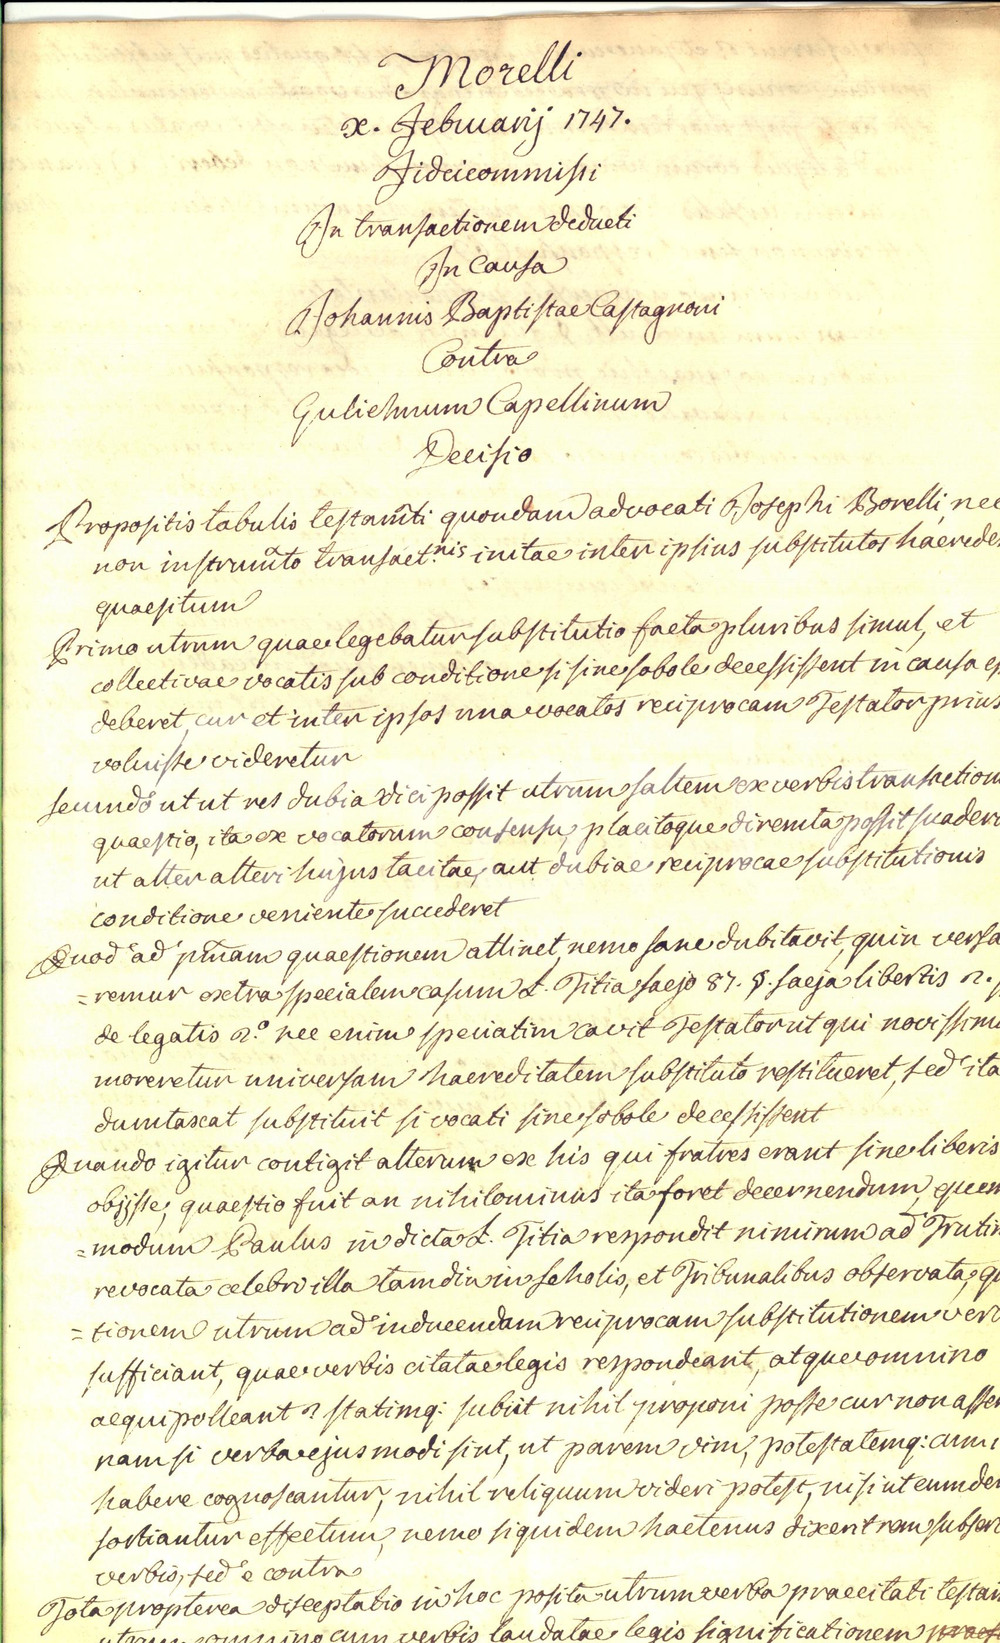 Morelli
x. Februarij 1747.
Fideicommissi
In transactionem deducti
In Causa
Johannis Baptistae Castagnoni
Contra
Gulielmum Capellinum
Decisio
Propositis tabulis testam̃ti quondam advocati Josephi Borelli, nec
non instrum̃to transact.nis initae inter ipsius substitutos haerede
quaesitum
Primo utrum quae legebatur substitutio facta pluribus simul, et
collectivae vocatis sub conditione si sine sobole decessissent in causa
deberet, cur et inter ipsos una vocatos reciprocam Testator prius
voluisse videretur
secundo ut ut res dubia dici possit utrum saltem ex verbis transaction
quaestio, ita ex vocatorum consensu, placitoque diremta possit suader
ut alter alteri hujus tacitae, aut dubiae reciprocae substitutionis
conditione veniente succederet
Quod ad pm̃am quaestionem attinet, nemo sane dubitavit, quin versa
=remur extra specialem casum L. Titia saejo 87. §. saeja libertis 2.
de legatis 2.° nec enim speciatim cavit Testator ut qui novissimu
moreretur universam haereditatem substituto restitueret, sed ita
dumtaxat substituit si vocati sine sobole decessissent
Quando igitur contigit alterum ex his qui fratres erant sine liberis
objisse, quaestio fuit an nihilominus ita foret decernendum, quem
=modum Paulus in dicta L. Titia respondit nimirum ad Trutin
revocata celebri illa tamdiu in scholis, et Tribunalibus observata, qu
=tionem utrum ad inducendam reciprocam substitutionem ver
sufficiant, quae verbis citatae legis respondeant, atque omnino
aequipolleant? statimq: subiit nihil proponi posse cur non asser
nam si verba ejusmodi sint, ut parem vim, potestatemq: cum
habere cognoscantur, nihil reliquum videri potest, nisi ut eumdem
sortiantur effectum, nemo siquidem hactenus dixerit rem subser
verbis, sed e contra
Tota propterea disceptatio in hoc posita utrum verba praecitati testam
utrum omnino cum verbis laudatae legis significationem